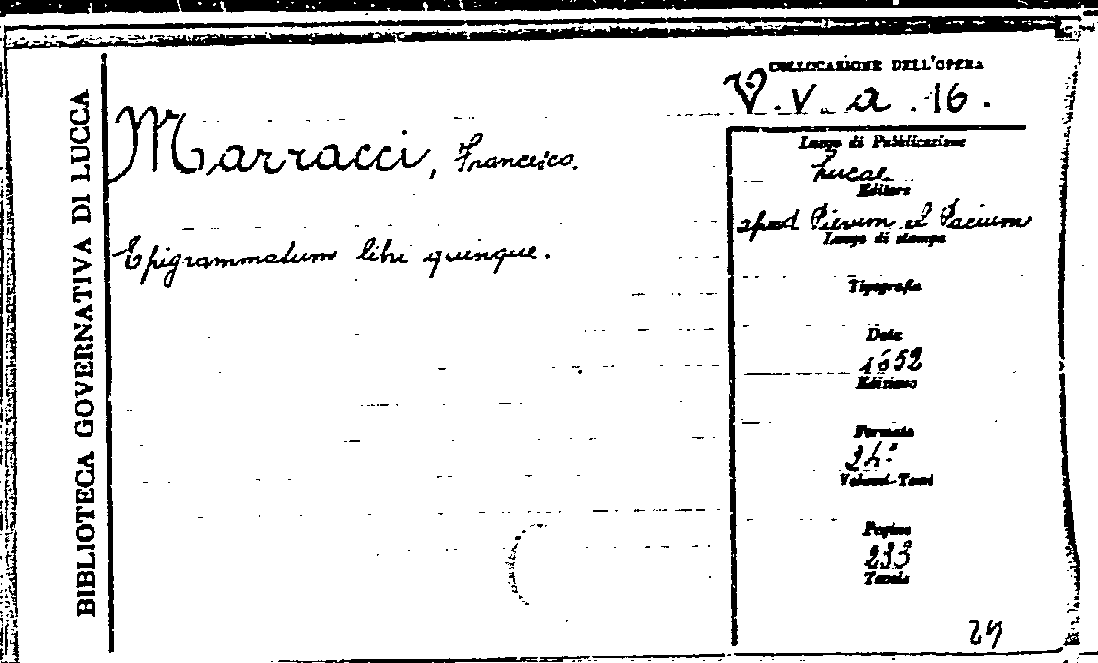 BIBLIOTECA GOVERNATIVA DI LUCCA
Marracci, Francesco.
Epigrammatum libri quinque.
COLLOCAZIONE DELL'OPERA
V. v. a. 16.
Luogo di Pubblicazione
Lucae
Editore
apud Pierum et Pacium
Luogo di stampa
Tipografia
Data
1652
Edizione
Formato
24º
Volumi-Tomi
Pagine
233
Tavole